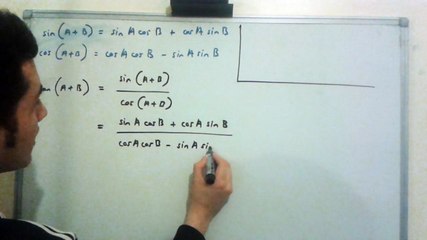 sin(A+B) = sin A cos B + cos A sin B
cos(A+B) = cos A cos B - sin A sin B
an(A+B) = sin(A+B)
cos(A+B)
= sin A cos B + cos A sin B
cos A cos B - sin A sin